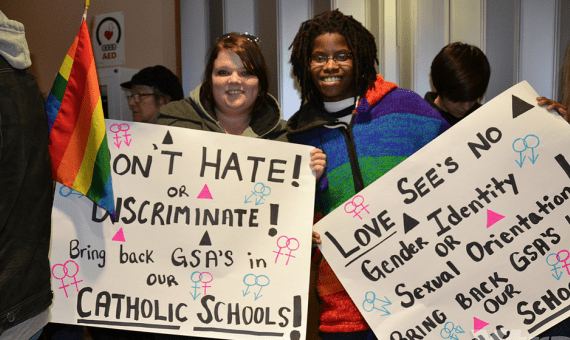 AED
ON'T HATE!
OR
DISCRIMINATE!
Bring back GSA'S in
OUR
CATHOLIC SCHOOLS!
LOVE SEE'S NO
Gender Identity
OR
Sexual Orientation!
BRING BACK GSA'S
OUR
IC SCHOO